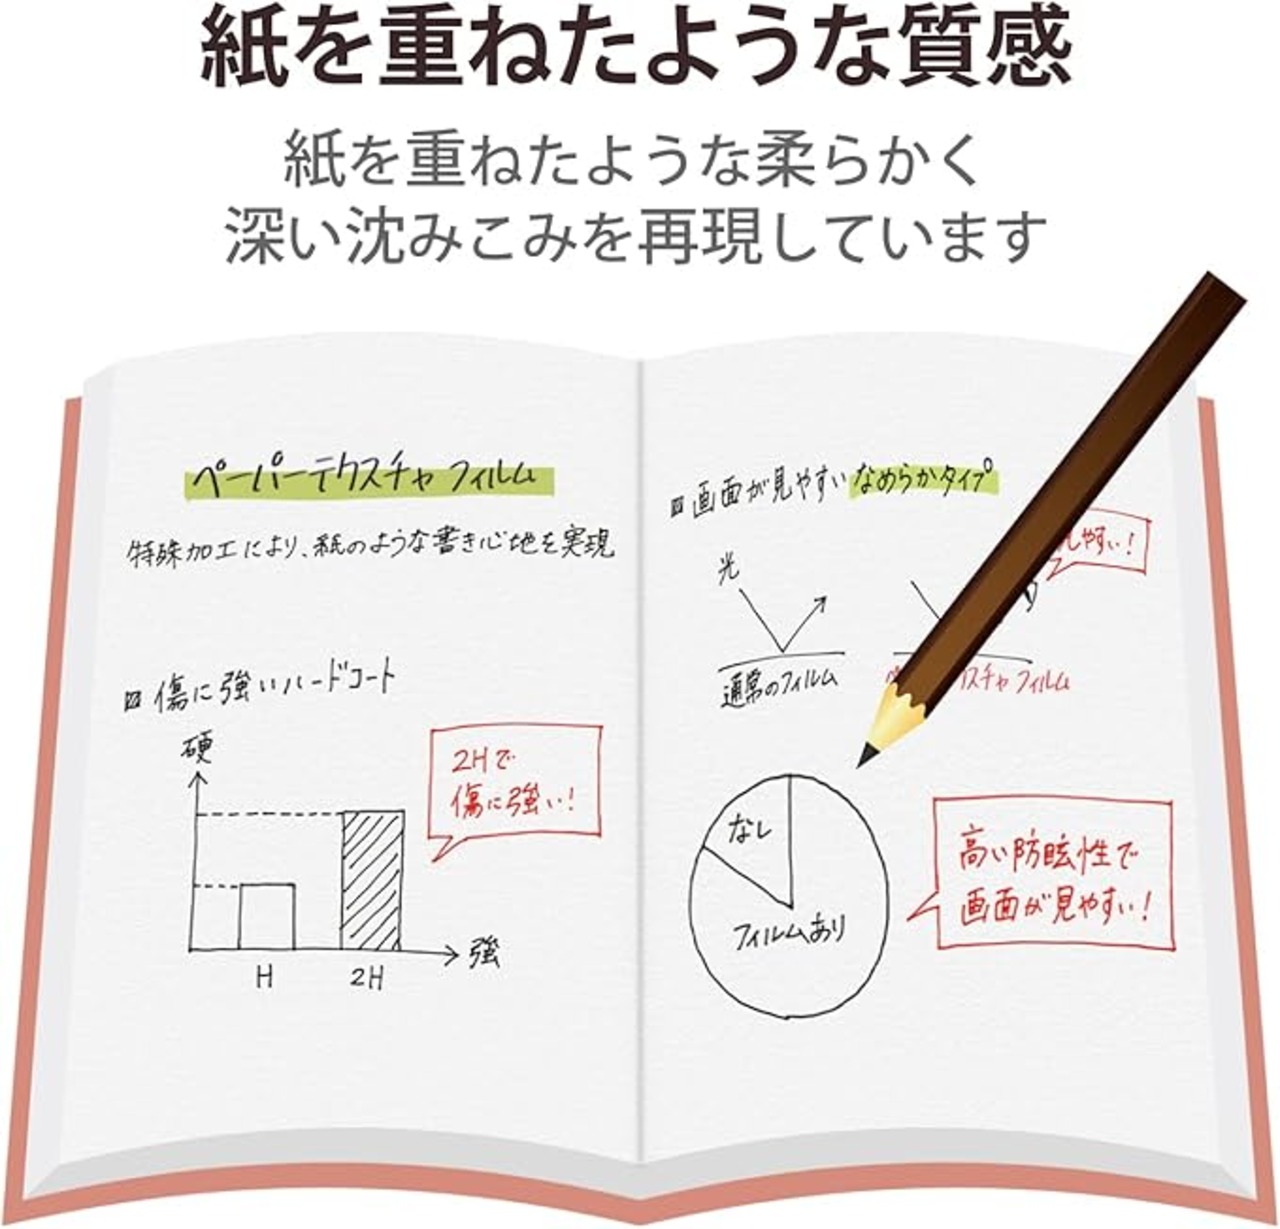 紙を重ねたような質感
紙を重ねたような柔らかく
深い沈みこみを再現しています
ペーパーテクスチャフィルム
特殊加工により、紙のような書き心地を実現
傷に強いハードコート
硬
2Hで
傷に強い!
強
H
2H
画面が見やすいなめらかタイプ
やすい!
光
通常のフィルム
スチャフィルム
なし
フィルムあり
高い防眩性で
画面が見やすい!